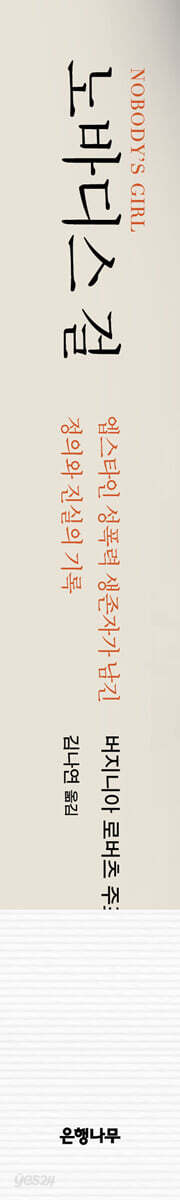 NOBODY'S GIRL
노바디스 걸
엡스타인 성폭력 생존자가 남긴
정의와 진실의 기록
버지니아 로버츠
김나연 옮김
은행나무
yes24